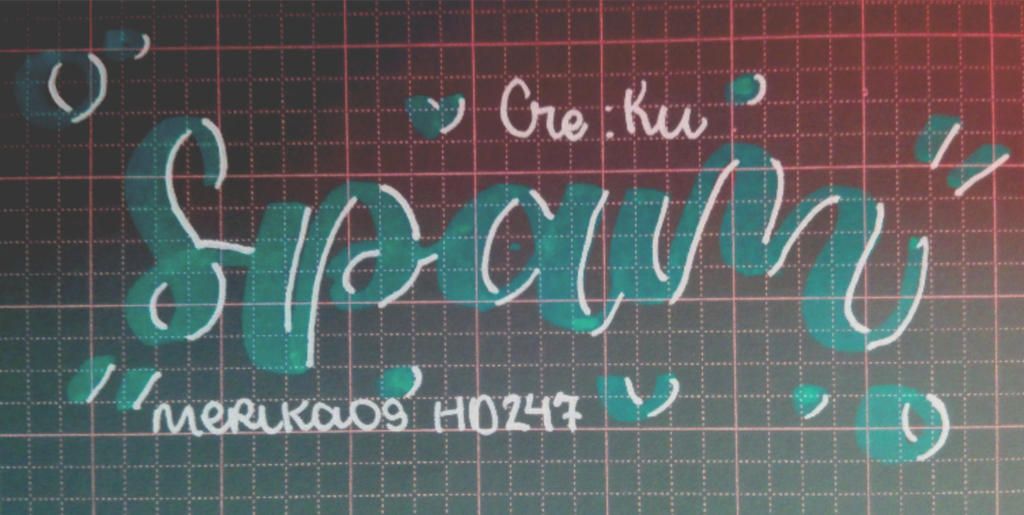 Cre : Ku
Spain
MERIKA09 HD247